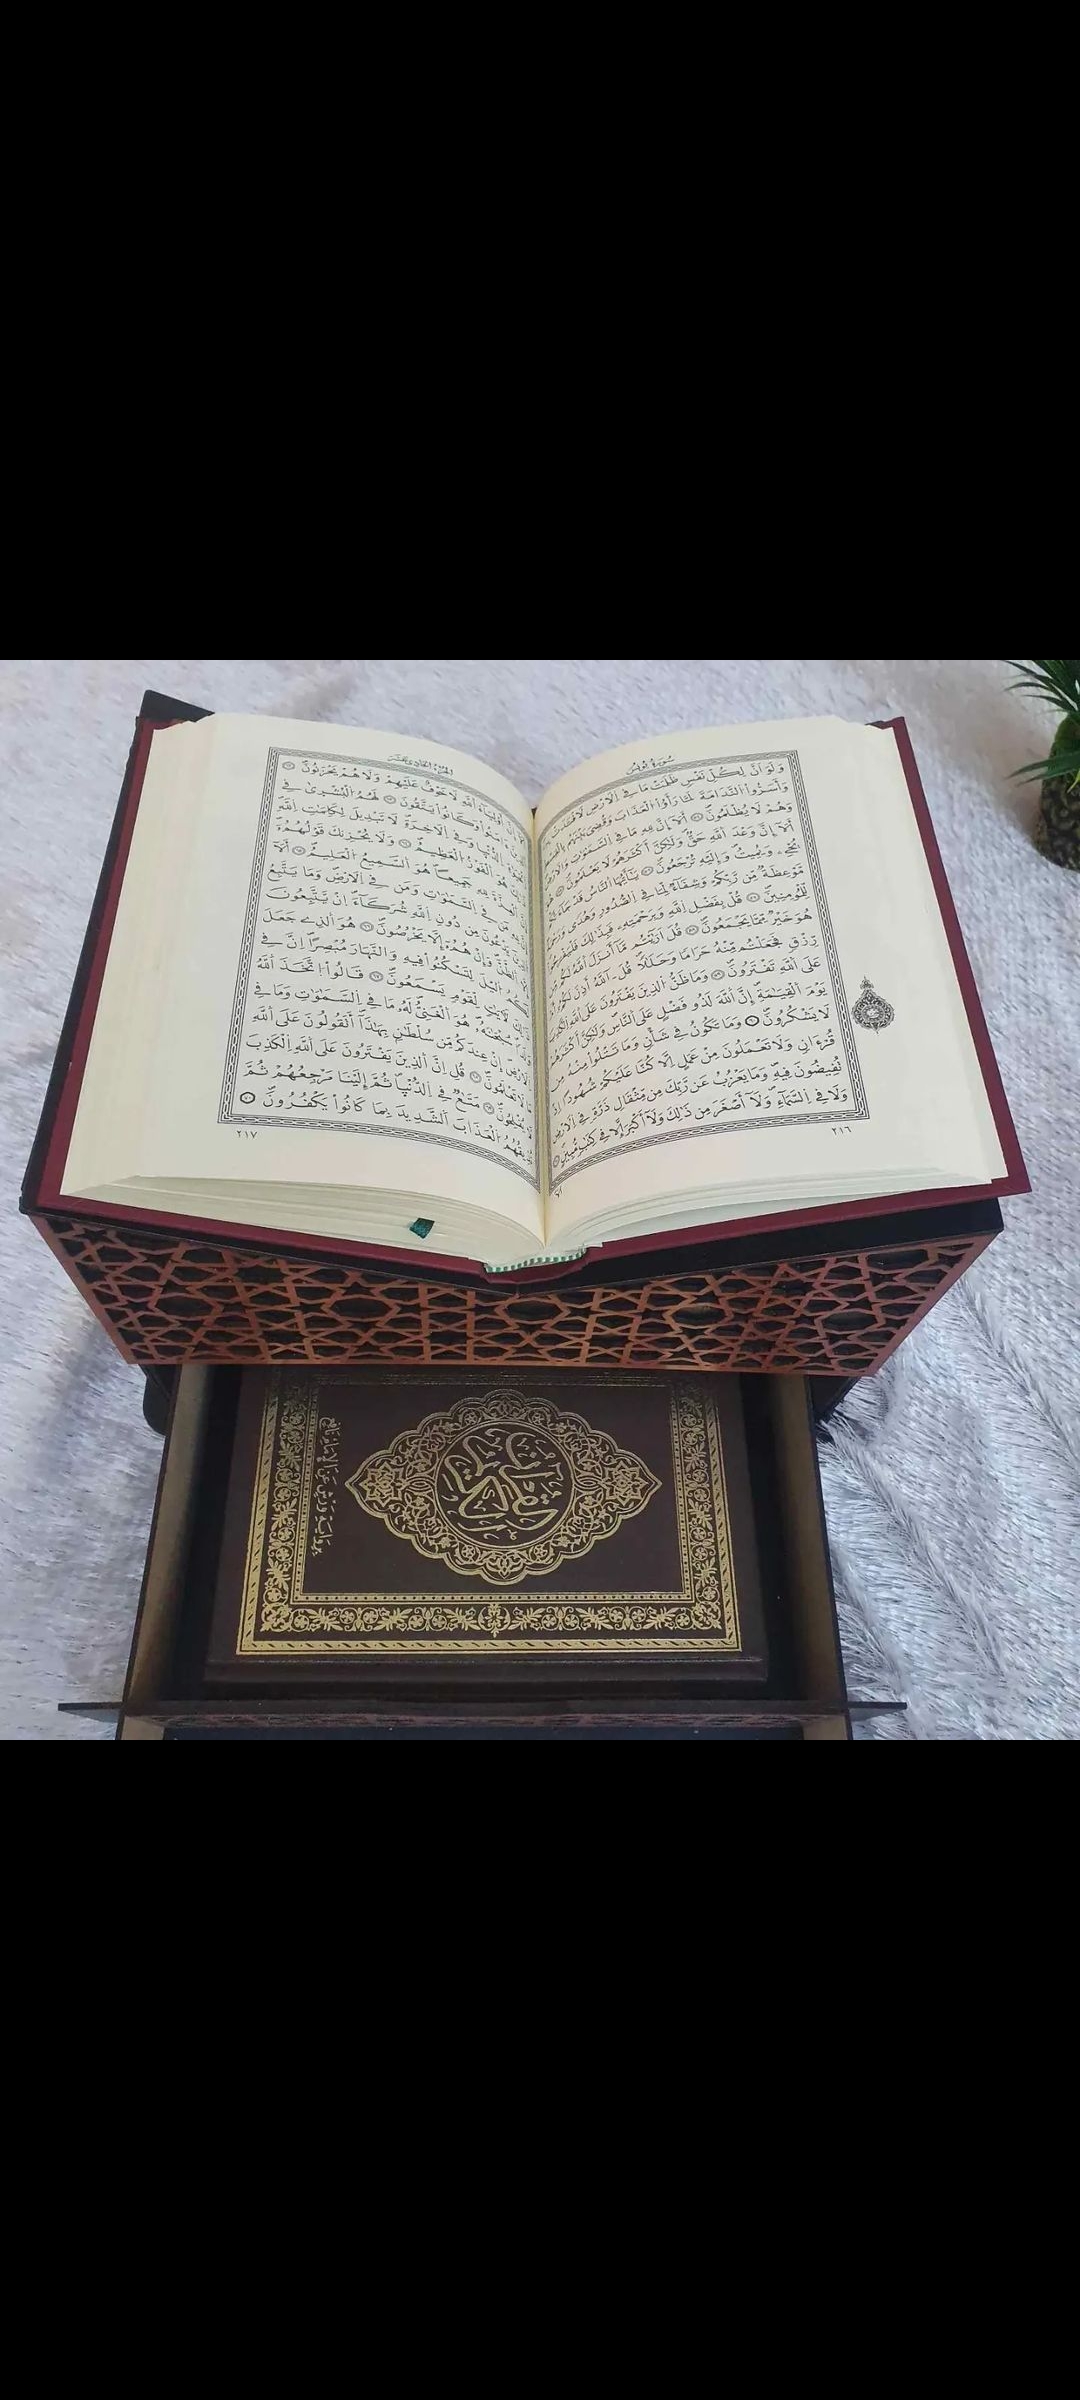 سورة يونس
وَلَوَ اَنَّ لِكُلِّ نَفْسٖ ظَلَمَتْ مَا فِے اِلَارْضِ لَافْتَدَتْ
وَأَسَرُّواْ النَّدَامَةَ لَمَّا رَأَوُاْ الْعَذَابَ وَقُضِيَ بَيْنَهُم
وَهُمْ لَا يُظْلَمُونَۖ أَلَآ إِنَّ لِلهِ مَا فِے اِلسَّمَٰوَٰتِ وَالَارْضِ
أَلَآ إِنَّ وَعْدَ اَللَّهِ حَقّٞ وَلَٰكِنَّ أَكْثَرَهُمْ لَا يَعْلَمُونَۖ
يُحْيِۦ وَيُمِيتُ وَإِلَيْهِ تُرْجَعُونَۖ يَٰٓأَيُّهَا اَلنَّاسُ قَدْ جَآءَتْكُم
مَّوْعِظَةٞ مِّن رَّبِّكُمْ وَشِفَآءٞ لِّمَا فِے اِلصُّدُورِ وَهُدىٗ وَرَحْمَةٞ
لِّلْمُومِنِينَۖ قُلْ بِفَضْلِ اِللَّهِ وَبِرَحْمَتِهِۦ فَبِذَٰلِكَ فَلْيَفْرَحُواْ
هُوَ خَيْرٞ مِّمَّا يَجْمَعُونَۖ قُلَ اَرَٰٓيْتُم مَّآ أَنزَلَ اَللَّهُ لَكُم
رِّزْقٖ فَجَعَلْتُم مِّنْهُ حَرَاماٗ وَحَلَٰلاٗۖ قُلَ ـ آللَّهُ أَذِنَ لَكُمُۥٓ
عَلَى اَللَّهِ تَفْتَرُونَۖ وَمَا ظَنُّ اُلذِينَ يَفْتَرُونَ عَلَى اَللَّهِ اِلْكَذِبَ
يَوْمَ اَلْقِيَٰمَةِۖ إِنَّ اَللَّهَ لَذُو فَضْلٍ عَلَى اَلنَّاسِ وَلَٰكِنَّ أَكْثَرَهُمْ
لَا يَشْكُرُونَۖ وَمَا تَكُونُ فِے شَأْنٖ وَمَا تَتْلُواْ مِنْهُ مِن
قُرْءَانٖ وَلَا تَعْمَلُونَ مِنْ عَمَلٍ اِلَّا كُنَّا عَلَيْكُمْ شُهُوداً اِذْ
تُفِيضُونَ فِيهِۖ وَمَا يَعْزُبُ عَن رَّبِّكَ مِن مِّثْقَالِ ذَرَّةٖ فِے اِلَارْضِ
وَلَا فِے اِلسَّمَآءِۖ وَلَآ أَصْغَرَ مِن ذَٰلِكَ وَلَآ أَكْبَرَ إِلَّا فِے كِتَٰبٖ مُّبِينٍۖ
٢١٦
الجزء الحادي عشر
إِنَّ أَوْلِيَآءَ اَللَّهِ لَا خَوْفٌ عَلَيْهِمْ وَلَا هُمْ يَحْزَنُونَۖ
ءَامَنُواْ وَكَانُواْ يَتَّقُونَۖ لَهُمُ اُلْبُشْر۪ىٰ فِے
اِلدُّنْي۪ا وَفِے اِلَاخِرَةِۖ لَا تَبْدِيلَ لِكَلِمَٰتِ اِللَّهِ
هُوَ اَلْفَوْزُ اُلْعَظِيمُۖ وَلَا يُحْزِنكَ قَوْلُهُمُۥٓ
اَلْعِزَّةَ لِلهِ جَمِيعاًۖ هُوَ اَلسَّمِيعُ اُلْعَلِيمُۖ أَلَآ
مَن فِے اِلسَّمَٰوَٰتِ وَمَن فِے اِلَارْضِۖ وَمَا يَتَّبِعُ
يَدْعُونَ مِن دُونِ اِللَّهِ شُرَكَآءَۖ انْ يَّتَّبِعُونَ
اَلظَّنَّ وَإِنْ هُمُۥٓ إِلَّا يَخْرُصُونَۖ هُوَ اَلذِے جَعَلَ
لَكُمُ اُلَّيْلَ لِتَسْكُنُواْ فِيهِ وَالنَّهَارَ مُبْصِراًۖ اِنَّ فِے
ذَٰلِكَ لَأٓيَٰتٖ لِّقَوْمٖ يَسْمَعُونَۖ قَالُواْ اُ۪تَّخَذَ اَللَّهُ
وَلَداٗۖ سُبْحَٰنَهُۥۖ هُوَ اَلْغَنِيُّۖ لَهُۥ مَا فِے اِلسَّمَٰوَٰتِ وَمَا فِے
اِلَارْضِۖ إِنْ عِندَكُم مِّن سُلْطَٰنِۢ بِهَٰذَآۖ أَتَقُولُونَ عَلَى اَللَّهِ
مَا لَا تَعْلَمُونَۖ قُلِ اِنَّ اَلذِينَ يَفْتَرُونَ عَلَى اَللَّهِ اِلْكَذِبَ
لَا يُفْلِحُونَۖ مَتَٰعٞ فِے اِلدُّنْي۪ا ثُمَّ إِلَيْنَا مَرْجِعُهُمْ ثُمَّ
نُذِيقُهُمُ اُلْعَذَابَ اَلشَّدِيدَ بِمَا كَانُواْ يَكْفُرُونَۖ
٢١٧
القرآن الكريم
برواية ورش عن الإمام نافع